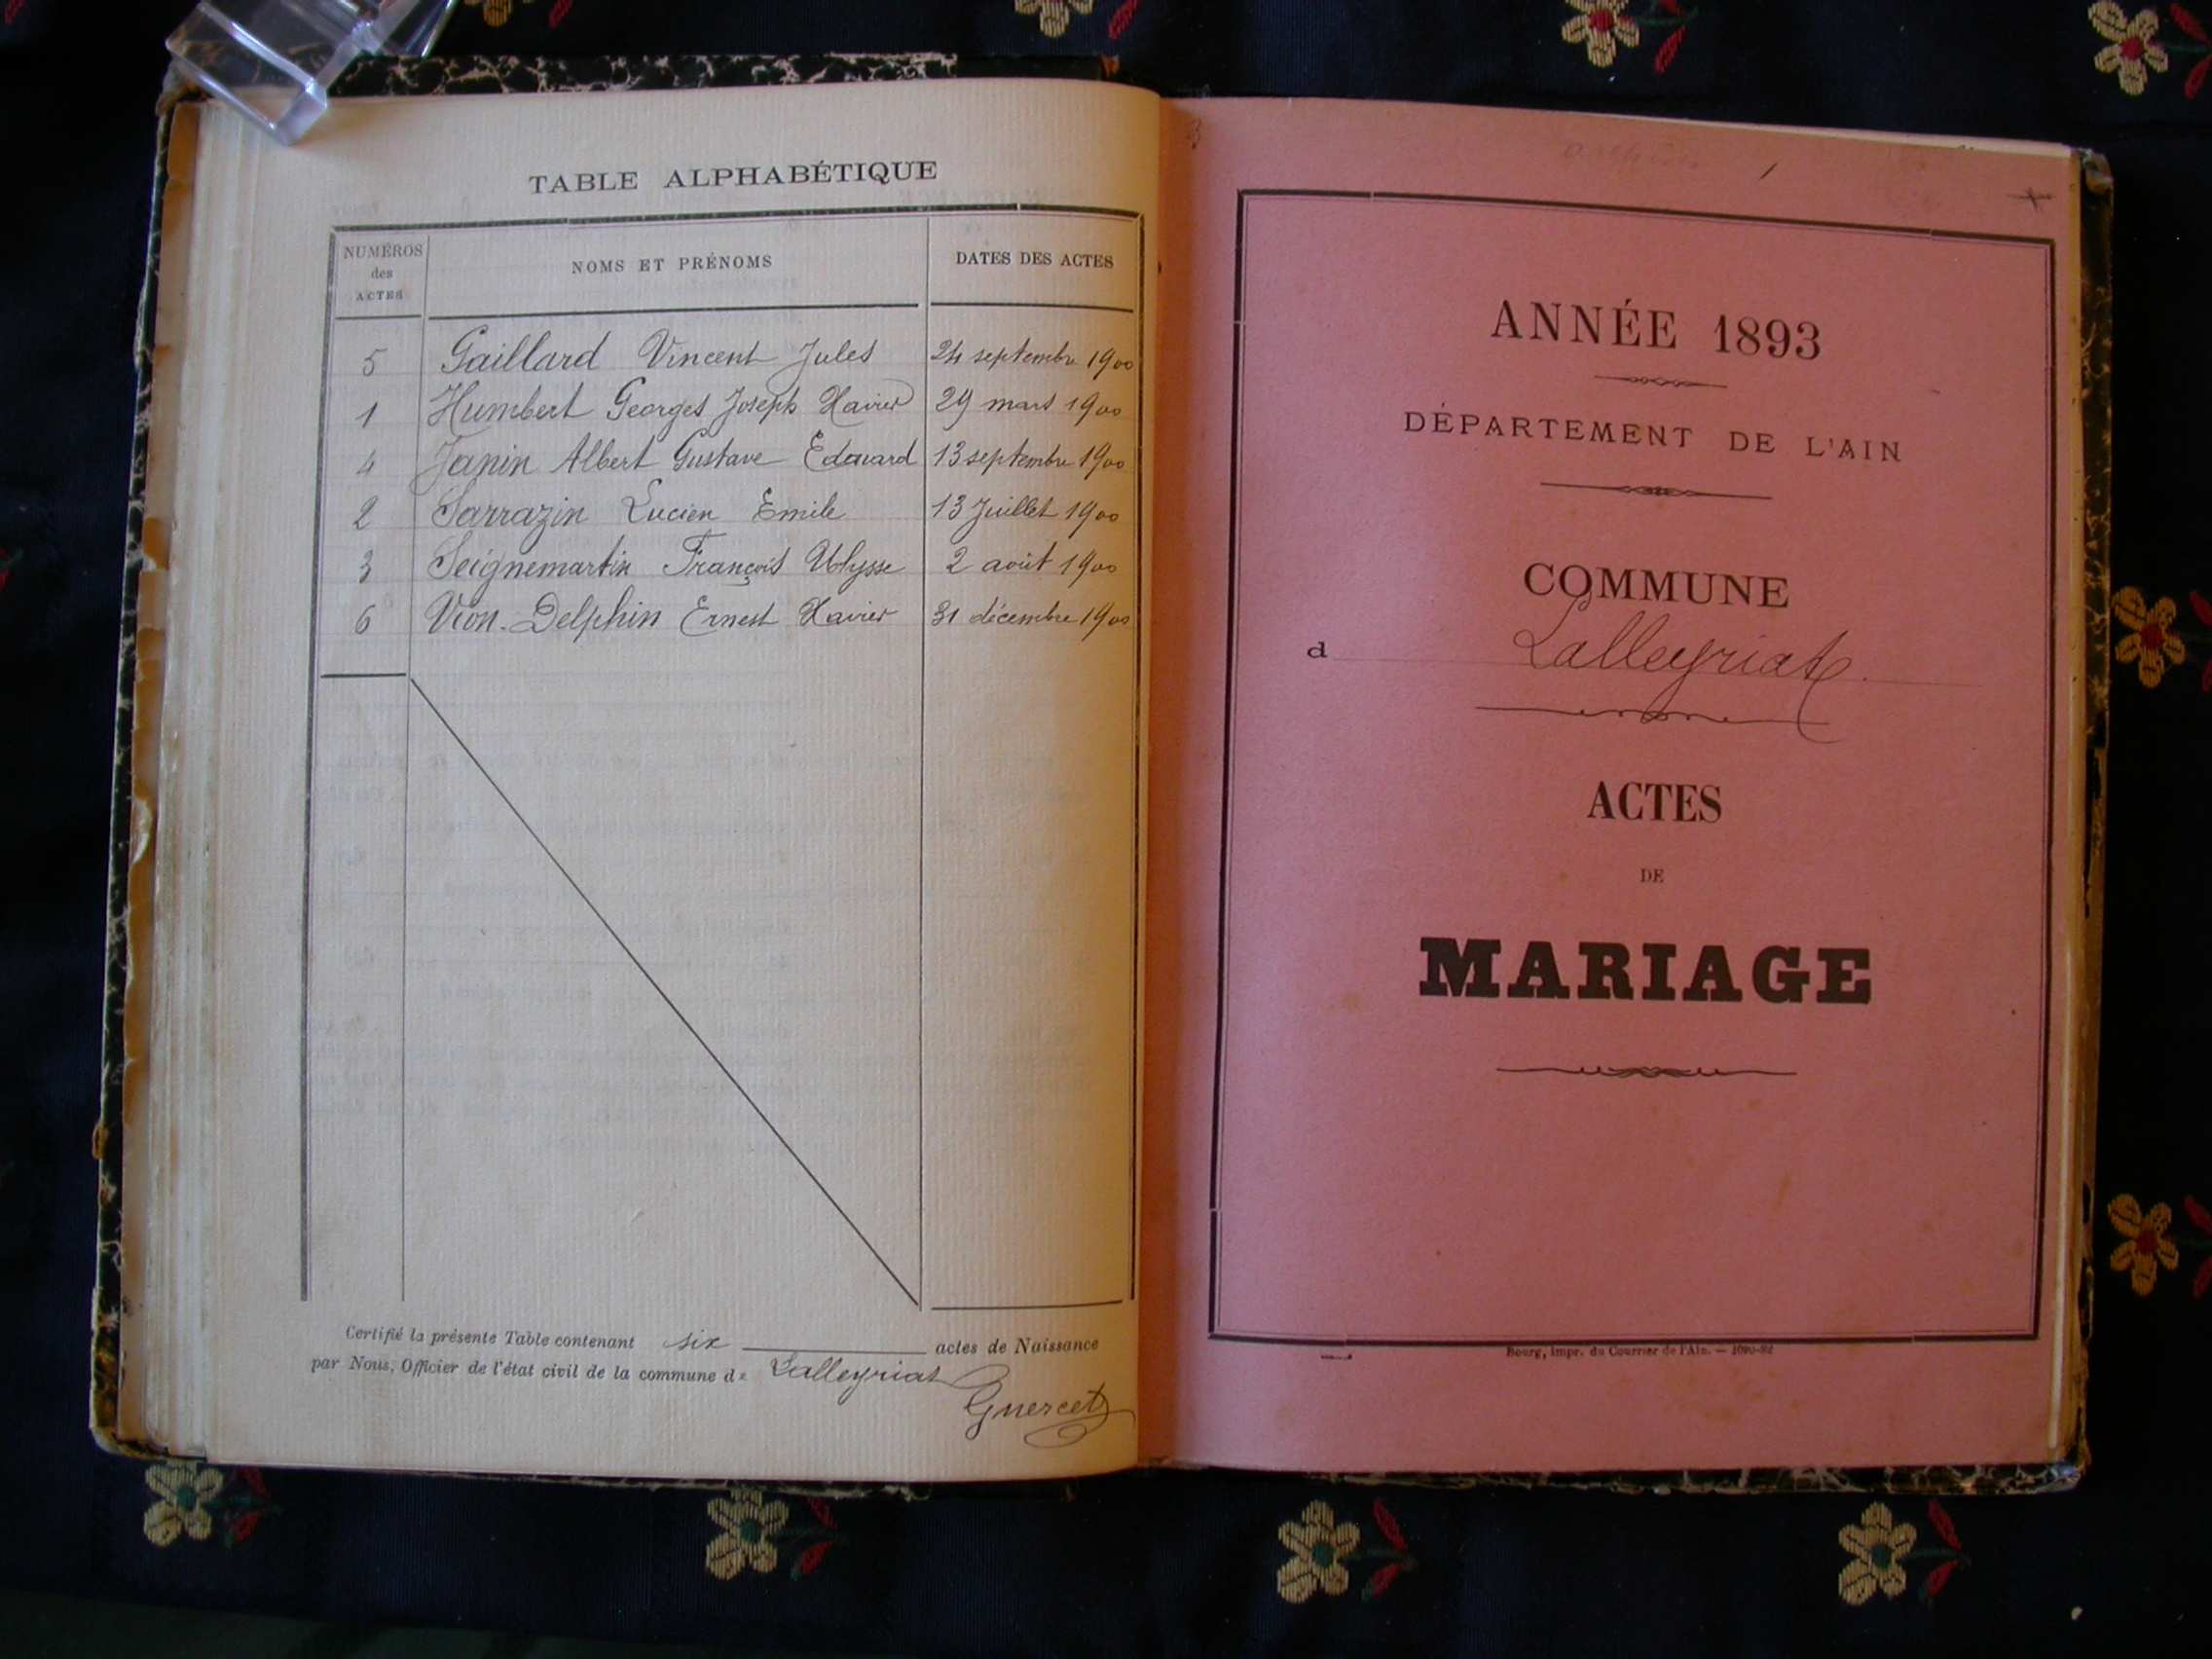 TABLE ALPHABÉTIQUE
NUMÉROS
des
ACTES
NOMS ET PRÉNOMS
DATES DES ACTES
5 Gaillard Vincent Jules 24 septembre 1900
1 Humbert Georges Joseph Xavier 29 mars 1900
4 Janin Albert Gustave Edouard 13 septembre 1900
2 Sarrazin Lucien Emile 13 Juillet 1900
3 Seignemartin François Ulysse 2 août 1900
6 Vion-Delphin Ernest Xavier 31 décembre 1900
Certifié la présente Table contenant six actes de Naissance
par Nous, Officier de l'état civil de la commune de Lalleyriat
ANNÉE 1893
DÉPARTEMENT DE L'AIN
COMMUNE
d Lalleyriat
ACTES
DE
MARIAGE
Bourg, impr. du Courrier de l'Ain. —